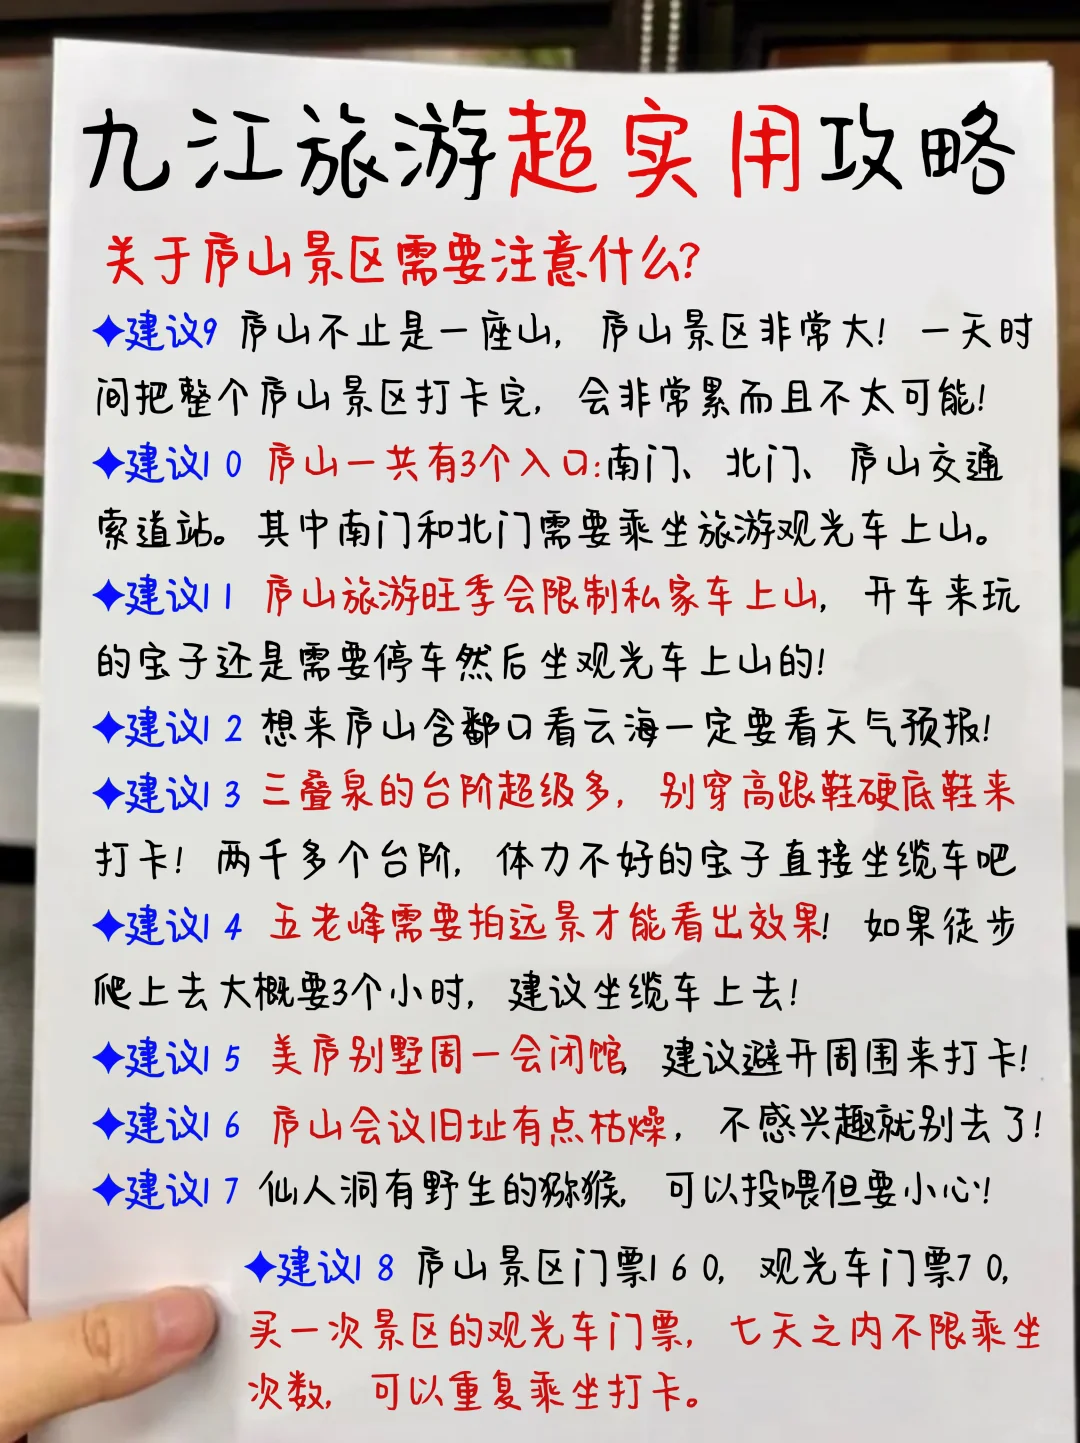 九江旅游超实用攻略
关于庐山景区需要注意什么?
✦建议9 庐山不止是一座山, 庐山景区非常大! 一天时
间把整个庐山景区打卡完, 会非常累而且不太可能!
✦建议10 庐山一共有3个入口:南门、北门、庐山交通
索道站。其中南门和北门需要乘坐旅游观光车上山。
✦建议11 庐山旅游旺季会限制私家车上山, 开车来玩
的宝子还是需要停车然后坐观光车上山的!
✦建议12 想来庐山含鄱口看云海一定要看天气预报!
✦建议13 三叠泉的台阶超级多, 别穿高跟鞋硬底鞋来
打卡! 两千多个台阶, 体力不好的宝子直接坐缆车吧
✦建议14 五老峰需要拍远景才能看出效果! 如果徒步
爬上去大概要3个小时, 建议坐缆车上去!
✦建议15 美庐别墅周一会闭馆, 建议避开周围来打卡!
✦建议16 庐山会议旧址有点枯燥, 不感兴趣就别去了!
✦建议17 仙人洞有野生的猕猴, 可以投喂但要小心!
✦建议18 庐山景区门票160, 观光车门票70,
买一次景区的观光车门票, 七天之内不限乘坐
次数, 可以重复乘坐打卡。